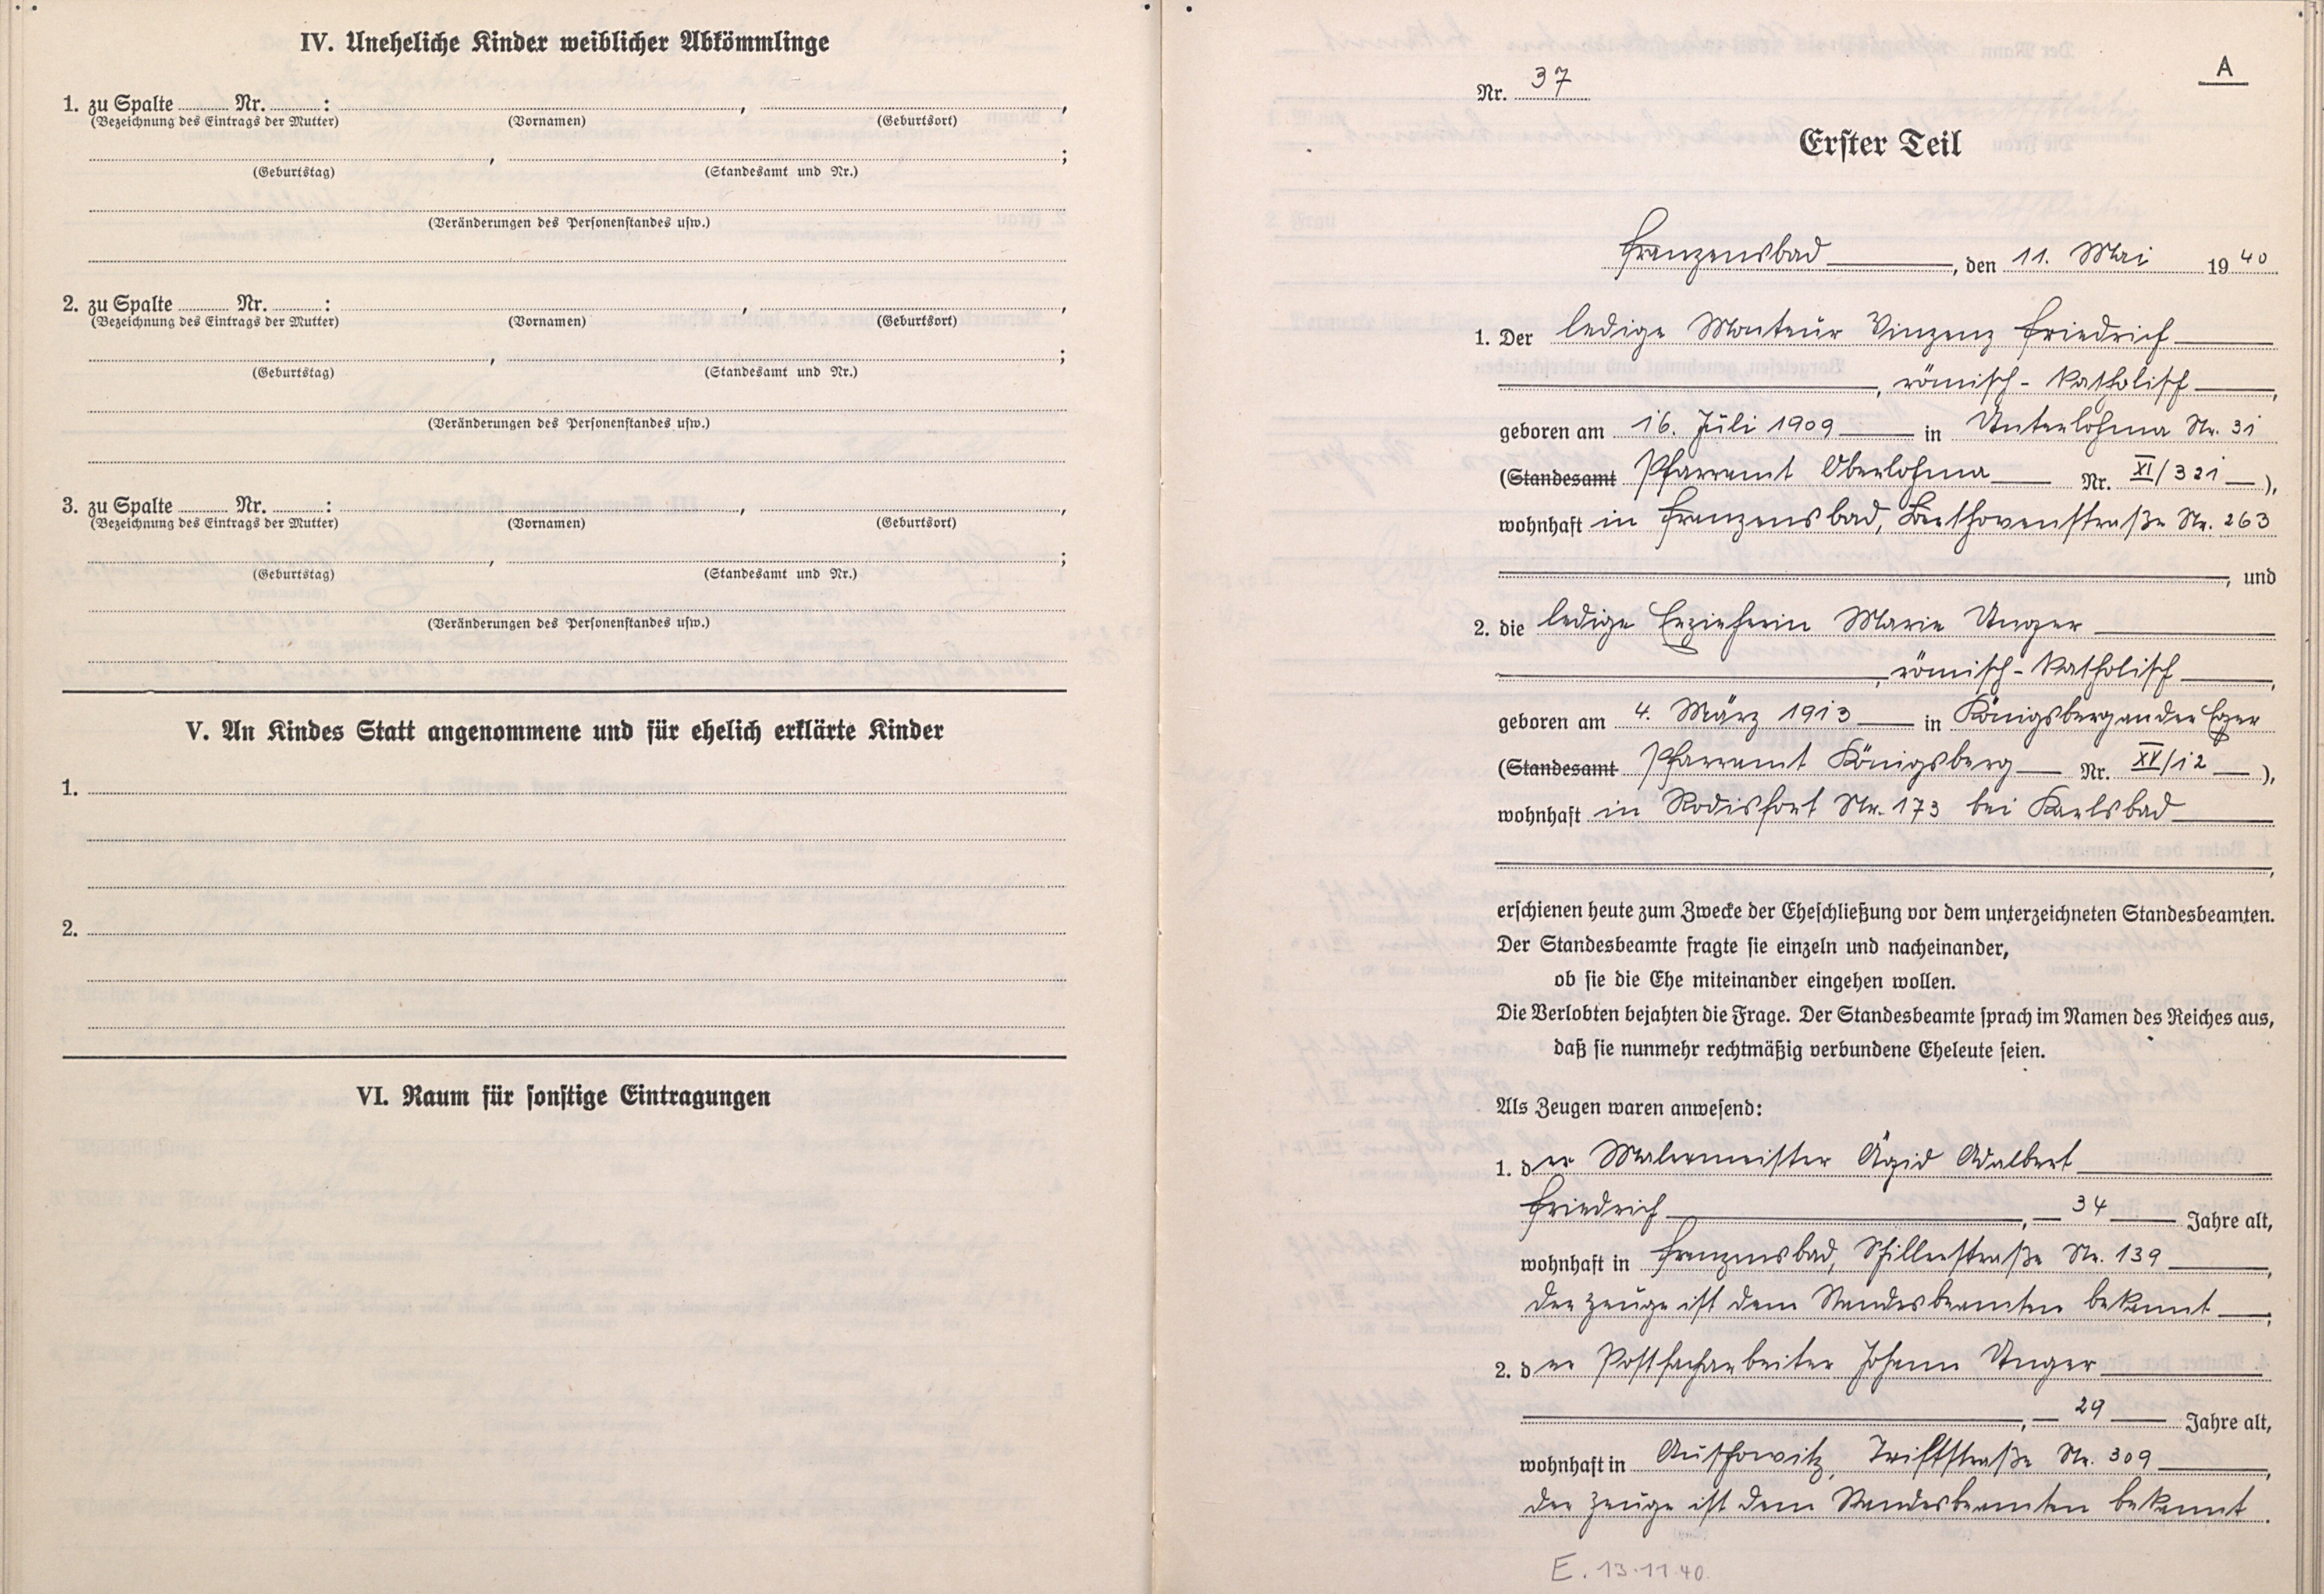 IV. Uneheliche Kinder weiblicher Abkömmlinge
1. zu Spalte Nr. : , ,
(Bezeichnung des Eintrags der Mutter) (Vornamen) (Geburtsort)
, ;
(Geburtstag) (Standesamt und Nr.)
(Veränderungen des Personenstandes usw.)
2. zu Spalte Nr. : , ,
(Bezeichnung des Eintrags der Mutter) (Vornamen) (Geburtsort)
, ;
(Geburtstag) (Standesamt und Nr.)
(Veränderungen des Personenstandes usw.)
3. zu Spalte Nr. : , ,
(Bezeichnung des Eintrags der Mutter) (Vornamen) (Geburtsort)
, ;
(Geburtstag) (Standesamt und Nr.)
(Veränderungen des Personenstandes usw.)
V. An Kindes Statt angenommene und für ehelich erklärte Kinder
1.
2.
VI. Raum für sonstige Eintragungen
A
Nr. 37
Erster Teil
Franzensbad, den 11. Mai 1940
1. Der ledige Monteur Vinzenz Friedrich
, römisch-katholisch,
geboren am 16. Juli 1909 in Unterlohma Nr. 31
(Standesamt Pfarramt Oberlohma Nr. XI/321),
wohnhaft in Franzensbad, Beethovenstraße Nr. 263
, und
2. die ledige Erzieherin Marie Unger
, römisch-katholisch,
geboren am 4. März 1913 in Königsberg an der Eger
(Standesamt Pfarramt Königsberg Nr. XV/12),
wohnhaft in Rodisfort Nr. 173 bei Karlsbad
,
erschienen heute zum Zwecke der Eheschließung vor dem unterzeichneten Standesbeamten.
Der Standesbeamte fragte sie einzeln und nacheinander,
ob sie die Ehe miteinander eingehen wollen.
Die Verlobten bejahten die Frage. Der Standesbeamte sprach im Namen des Reiches aus,
daß sie nunmehr rechtmäßig verbundene Eheleute seien.
Als Zeugen waren anwesend:
1. der Malermeister Ägid Adalbert
Friedrich, 34 Jahre alt,
wohnhaft in Franzensbad, Schillerstraße Nr. 139,
der Zeuge ist dem Standesbeamten bekannt;
2. der Postfacharbeiter Johann Unger
, 29 Jahre alt,
wohnhaft in Auschowitz, Triftstraße Nr. 309,
der Zeuge ist dem Standesbeamten bekannt.
E. 13.11.40.